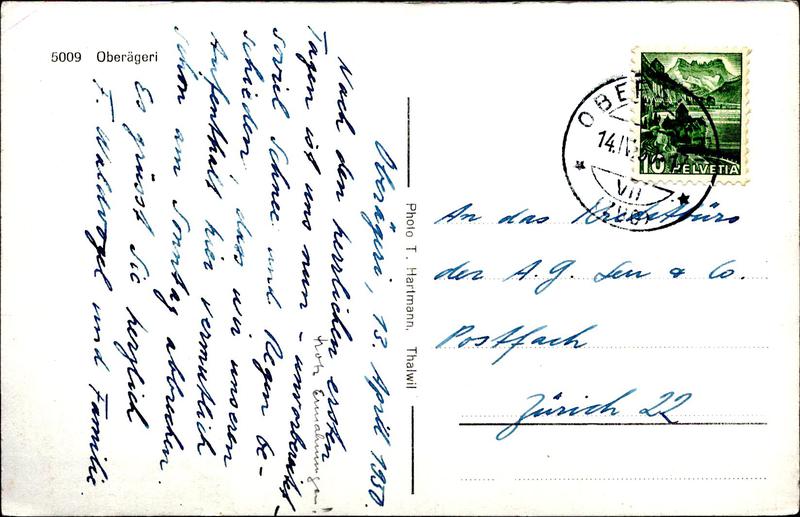 5009 Oberägeri
Oberägeri, 13. April 1950.
Nach den herrlichen ersten
Tagen ist uns nun - unvorbereitet -
trotz Ermahnungen!
soviel Schnee und Regen be-
schieden, dass wir unseren
Aufenthalt hier vermutlich
schon am Sonntag abbrechen.
Es grüsst Sie herzlich
F. Waldvogel und Familie
Photo T. Hartmann, Thalwil
14.IV.50
VII
10 HELVETIA
An das Kreditbüro
der A.G. Leu & Co.
Postfach
Zürich 22